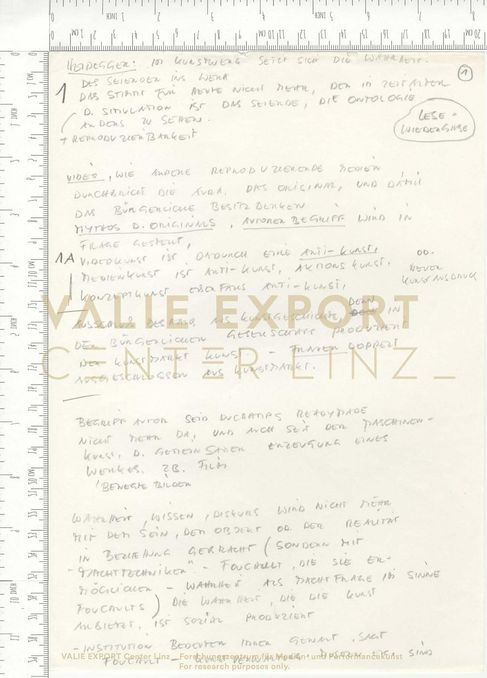 HEIDEGGER: IM KUNSTWERK SETZT SICH DIE WAHRHEIT
DES SEIENDEN INS WERK
1
DAS STIMMT FÜR HEUTE NICHT MEHR, DENN IM ZEITALTER
D. SIMULATION IST DAS SEIENDE, DIE ONTOLOGIE
ANDERS ZU SEHEN.
+ REPRODUZIERBARKEIT
1
LESE-
WIEDERGABE
VIDEO, WIE ANDERE REPRODUZIERENDE MEDIEN
DURCHBRICHT DIE AURA, DAS ORIGINAL, UND DAMIT
DAS BÜRGERLICHE BESITZDENKEN
MYTHOS D. ORIGINALS, AUTORENBEGRIFF WIRD IN
FRAGE GESTELLT,
1A VIDEOKUNST IST DADURCH EINE ANTI-KUNST,
MEDIENKUNST IST ANTI-KUNST, AKTIONSKUNST,
KONZEPTKUNST EBENFALLS ANTI-KUNST,
OD.
NEUER
KUNSTAUSDRUCK
AUS KUNSTGESCHICHTE, DENN IN
DER BÜRGERLICHEN GESELLSCHAFT PRODUZIERT
DER KUNSTMARKT KUNST - FRAUEN DOPPELT
AUSGESCHLOSSEN AUS KUNSTMARKT.
BEGRIFF AUTOR SEIT DUCHAMPS READYMADE
NICHT MEHR DA, UND AUCH SEIT DER MASCHINEN-
KUNST, D. GEMEINSAMEN ERZEUGUNG EINES
WERKES. ZB. FILM
BEWEGTE BILDER
WAHRHEIT, WISSEN, DISKURS WIRD NICHT MEHR
MIT DEM SEIN, DEM OBJEKT OD. DER REALITÄT
IN BEZIEHUNG GEBRACHT (SONDERN MIT
"MACHTTECHNIKEN" - FOUCAULT, DIE SIE ER-
MÖGLICHEN - WAHRHEIT ALS MACHTFRAGE IM SINNE
FOUCAULTS) DIE WAHRHEIT, DIE DIE KUNST
ANBIETET, IST SOZIAL PRODUZIERT
- INSTITUTION BEDEUTET IMMER GEWALT, SAGT
FOUCAULT - KUNST MUSEEN ETC. SIND
VALIE EXPORT
CENTER LINZ_
VALIE EXPORT Center Linz_ Forschungszentrum für Medien- und Performancekunst
For research purposes only.